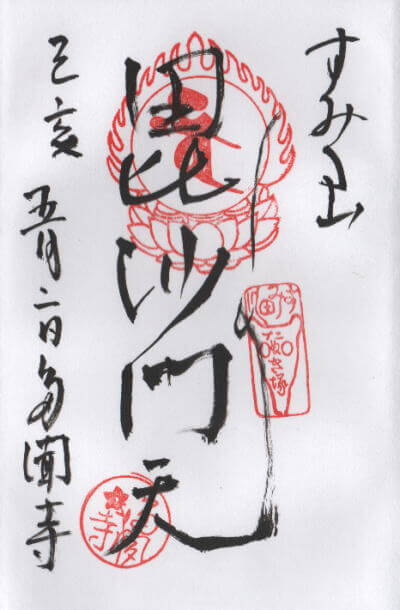 すみ山
毘沙門天
己亥 五月二日 多聞寺
たぬき塚